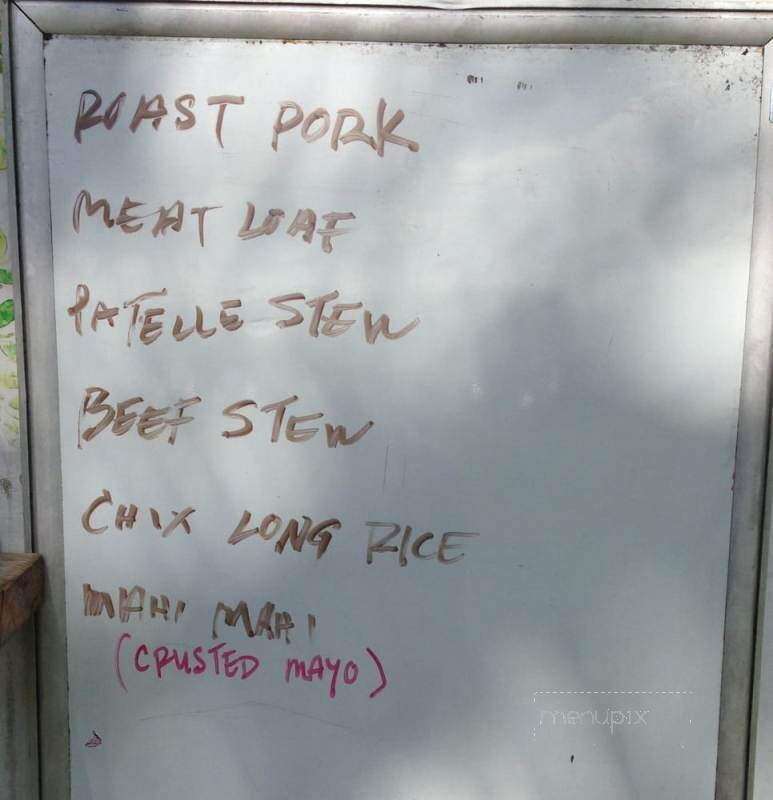 ROAST PORK
MEAT LOAF
PATELLE STEW
BEEF STEW
CHIX LONG RICE
MAHI MAHI
(CRUSTED MAYO)
menupix